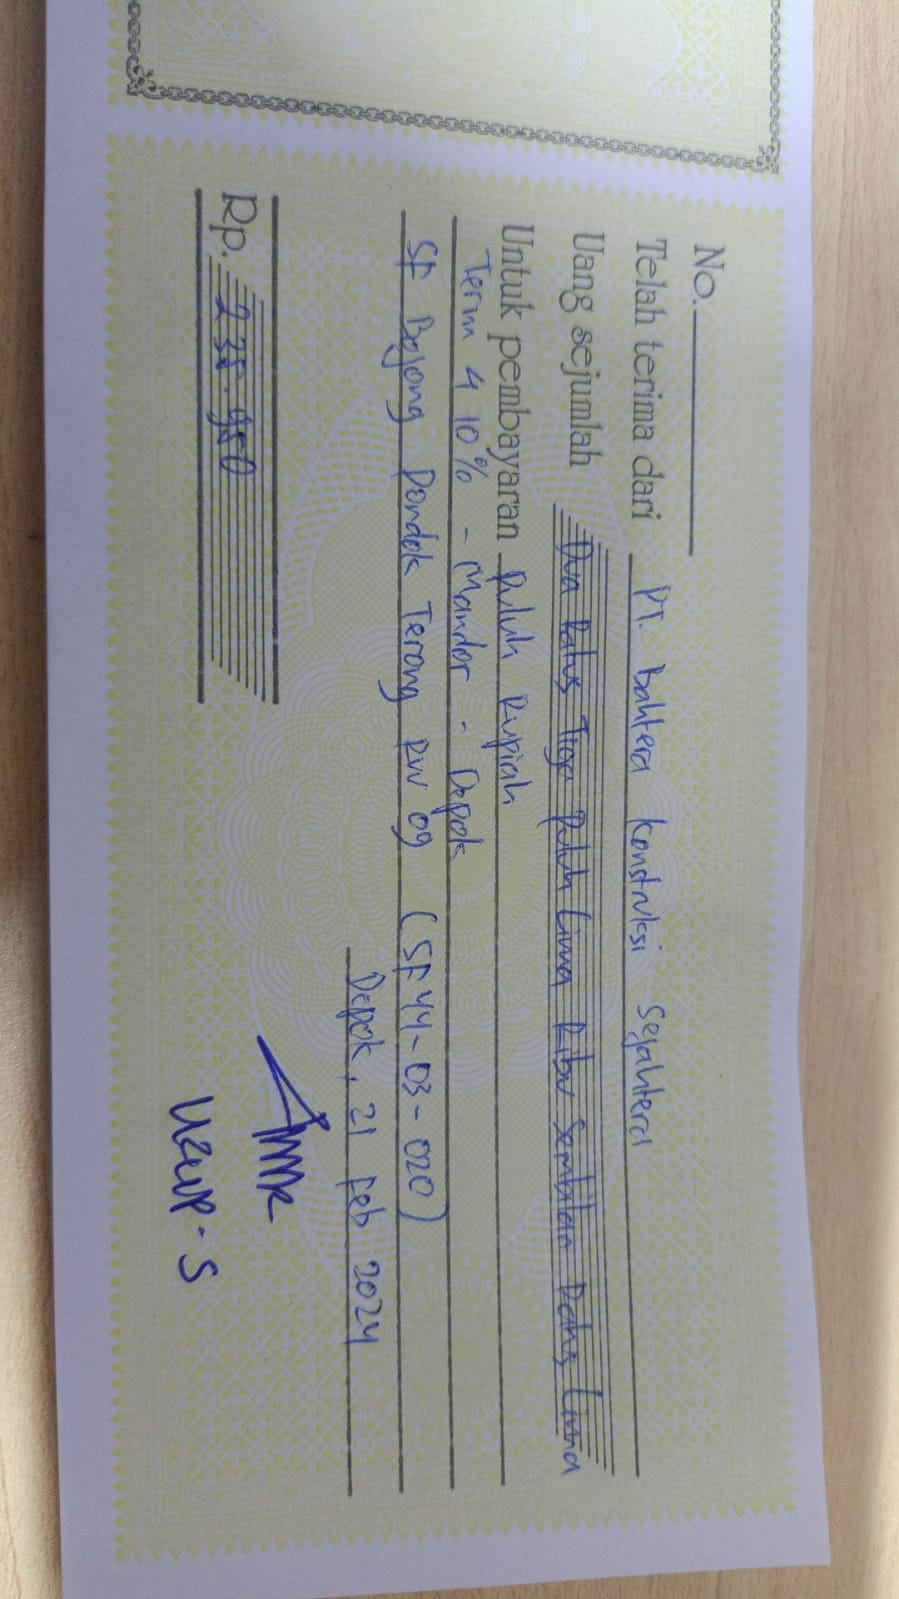 No.
Telah terima dari PT. Bahtera Konstruksi Sejahtera
Uang sejumlah Dua Ratus Tiga Puluh Lima Ribu Sembilan Ratus Lima
Untuk pembayaran Puluh Rupiah
Term 4 10% - Mandor - Depok
SF Bojong Pondok Terong RW 09 (SF44-03-020)
Depok, 21 Feb 2024
Rp. 235.950